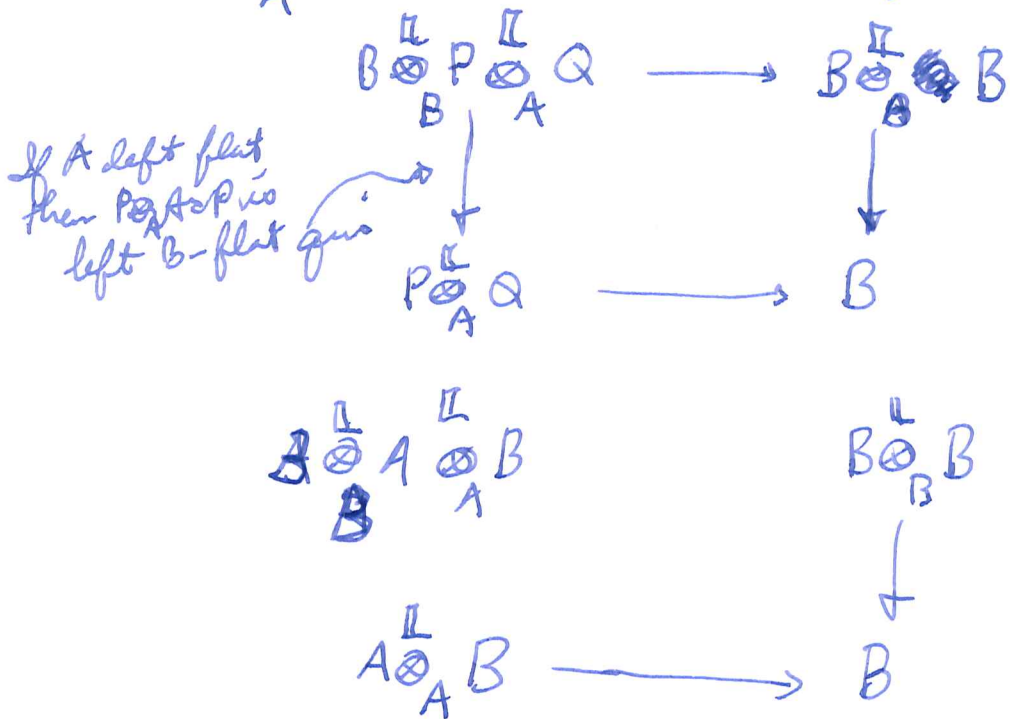 A
B ⊗ᴸ_B P ⊗ᴸ_A Q ⟶ B ⊗ᴸ_B B
If A left flat
then P⊗_A A ≃ P is
left B-flat quis
P ⊗ᴸ_A Q ⟶ B
B ⊗ᴸ_B A ⊗ᴸ_A B B ⊗ᴸ_B B
A ⊗ᴸ_A B ⟶ B